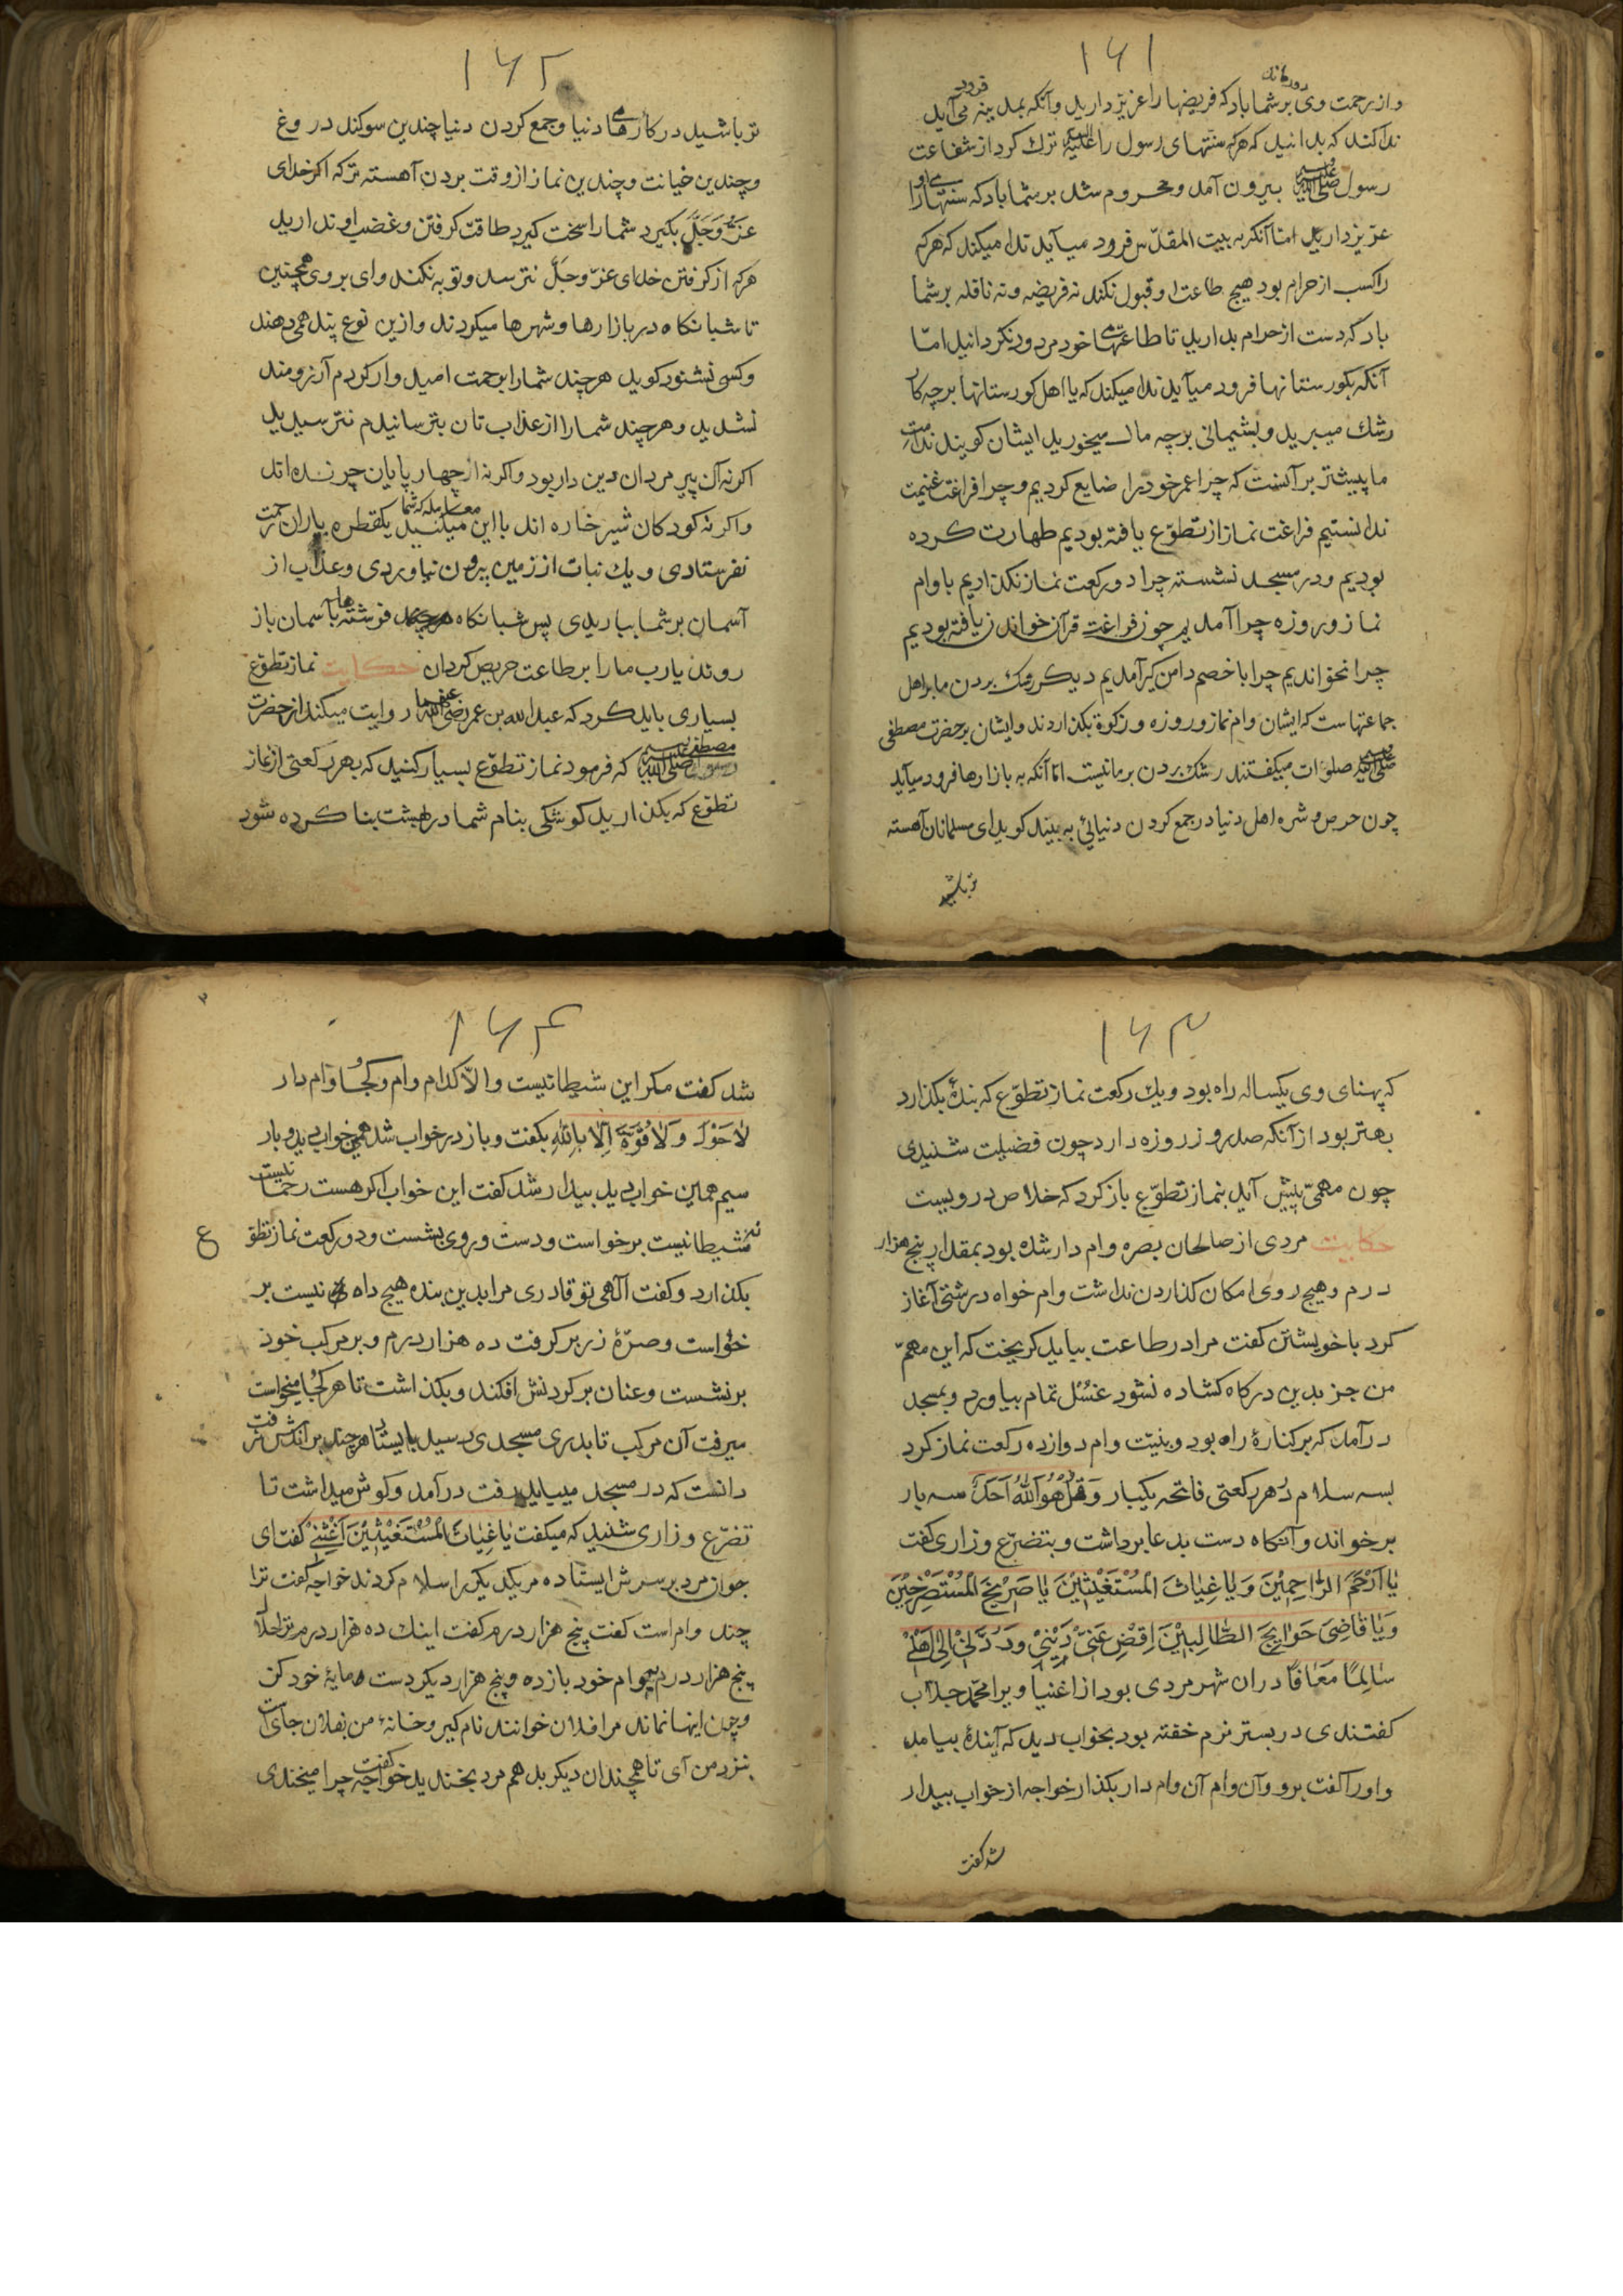 ۱۶۱
دور مانند
واز رحمت وی بر شما باد که فریضها را عزیز دارید وآنکه بمدینه فرود می آید
ندا کند که بدانید که هرکه سنتهای رسول را علیه السلم ترک کرد از شفاعت
رسول صلی الله علیه وسلم بیرون آمد و محروم شد بر شما باد که سنتهاے او را
عزیز دارید امّا آنکه به بیت المقدّس فرود میآید ندا میکند که هرکه
را کسب از حرام بود هیچ طاعت او قبول نکند نه فریضه و نه نافله بر شما
باد که دست از حرام بدارید تا طاعتهاے خود مردود نکردانید امّا
آنکه بکورستانها فرود میآید ندا میکند که یا اهل کورستانها بر چه کار
رشک میبرید و پشیمانی بر چه مال میخورید ایشان کویند ندامت
ما پیشتر بر آنست که چرا عمر خود را ضایع کردیم و چرا فراغت غنیمت
ندانستیم فراغت نماز از تطوّع یافته بودیم طهارت کرده
بودیم و در مسجد نشسته چرا دو رکعت نماز نکذاردیم با وام
نماز و روزه چرا آمدیم چون فراغت قرآن خواندن یافته بودیم
چرا نخواندیم چرا با خصم دامن کیر آمدیم دیکر رشک بردن ما بر اهل
جماعتهاست که ایشان وام نماز و روزه و زکوة بکذاردند و ایشان بر حضرت مصطفی
صلی الله علیه وسلم صلوات میکفتند رشک بردن بر ما نیست امّا آنکه به بازارها فرود میآید
چون حرص و شره اهل دنیا در جمع کردن دنیائی به بیند کوید ای مسلمانان آهسته
تر باشید
۱۶۲
تر باشید در کارهاے دنیا و جمع کردن دنیا چندین سوکند دروغ
و چندین خیانت و چندین نماز از وقت بردن آهسته تر که اکر خدای
عزّ وَجَلّ بکیرد شما را سخت کیرد طاقت کرفتن و غضب او ندارید
هرکه از کرفتن خدای عزّ وجلّ نترسد و توبه نکند وای بر وی همچنین
تا شبانکاه در بازارها و شهرها میکردند و ازین نوع پند همی دهند
و کسی نشنود کوید هرچند شما را برحمت امیدوار کردم آرزومند
نشدید و هرچند شما را از عذاب تان بترسانیدم نترسیدید
اکر نه آن پیر مردان دین دار بود و اکر نه از چهار پایان چرنده اند
و اکر نه کودکان شیر خاره اند با این معامله که شما میکنید یکقطره باران رحمت
نفرستادی و یک نبات از زمین بیرون نیاوردی و عذاب از
آسمان بر شما بباریدی پس شبانکاه هرچهار فرشته ها بآسمان باز
روند یا رب ما را بر طاعت حریص کردان حکایت نماز تطوّع
بسیاری باید کرد که عبدالله بن عمر رضی الله عنهما روایت میکند از حضرت
مصطفی صلی الله علیه وسلم که فرمود نماز تطوّع بسیار کنید که بهر رکعتی از نماز
تطوّع که بکذارید کوشکی بنام شما در بهشت بنا کرده شود
۱۶۳
که پهنای وی یکساله راه بود و یک رکعت نماز تطوّع که بندهٔ بکذارد
بهتر بود از آنکه صد روز روزه دارد چون فضیلت شنیدی
چون مهمّی پیش آید بنماز تطوّع باز کرد که خلاص در ویست
حکایت مردی از صالحان بصره وام دار شده بود بمقدار پنج هزار
درم و هیچ روی امکان کذاردن نداشت وام خواه درشتی آغاز
کرد با خویشتن کفت مرا در طاعت بباید کریخت که این مهمّ
من جز بدین درکاه کشاده نشود غُسُل تمام بیاورد و بمسجد
درآمد که بر کنارهٔ راه بود و بنیّت وام دوازده رکعت نماز کرد
بسه سلام در هر رکعتی فاتحه یکبار وَقُلْ هُوَ اللّٰهُ اَحَدٌ سه بار
بر خواند و آنکاه دست بدعا برداشت و بتضرّع و زاری کفت
یٰا اَرْحَمَ الرّٰاحِمِیْنَ وَ یٰا غِیٰاثَ الْمُسْتَغِیْثِیْنَ یٰا صَرِیْخَ الْمُسْتَصْرِخِیْنَ
وَ یٰا قٰاضِیَ حَوٰایِجَ الطّٰالِبِیْنَ اِقْضِ عَنّیْ دَیْنیْ وَرُدَّنیْ اِلیٰ اَهْلیْ
سٰالِمًا مَعٰافًا در ان شهر مردی بود از اغنیا ویرا محمّد جلاب
کفتندی در بستر نرم خفته بود بخواب دید که آیندهٔ بیامد
و اورا کفت برو و آن وام آن وام دار بکذار خواجه از خواب بیدار
شد کفت
۱۶۴
شد کفت مکر این شیطانیست و الّا کدام وام و کجا وام دار
لٰا حَوْلَ وَ لٰا قُوَّةَ اِلّٰا بِاللّٰهِ بکفت و باز در خواب شد همین خواب بدید و بار
سیم همین خواب بدید بیدار شد کفت این خواب اکر هست رحمانیست
نه شیطانیست برخواست و دست و روی بشست و دو رکعت نماز تطوّع
بکذارد و کفت آلهی تو قادری مرا بدین بنده هیچ راه نیست بر
خواست و صرّهٔ زر بر کرفت ده هزار درم و بر مرکب خود
بر نشست و عنان بر کردنش افکند و بکذاشت تا هر کجا میخواست
میرفت آن مرکب تا بدری مسجدی رسید بایستاد هرچند براندش نرفت
دانست که در مسجد میباید رفت درآمد و کوش میداشت تا
تضرّع و زاری شنید که میکفت یٰا غِیٰاثَ الْمُسْتَغِیْثِیْنَ اَغِثْنیْ کفت ای
جوان مرد بر سرش ایستاده مر یکدیکر را سلام کردند خواجه کفت ترا
چند وام است کفت پنج هزار درم کفت اینک ده هزار درم مر ترا حلال
پنج هزار درم بوام خود باز ده و پنج هزار دیکر دست مایهٔ خود کن
و چون اینها نماند مرا فلان خوانند نام کیر و خانهٔ من بفلان جای است
بنزد من آی تا همچندان دیکر بدهم مرد بخندید خواجه کفت چرا میخندی